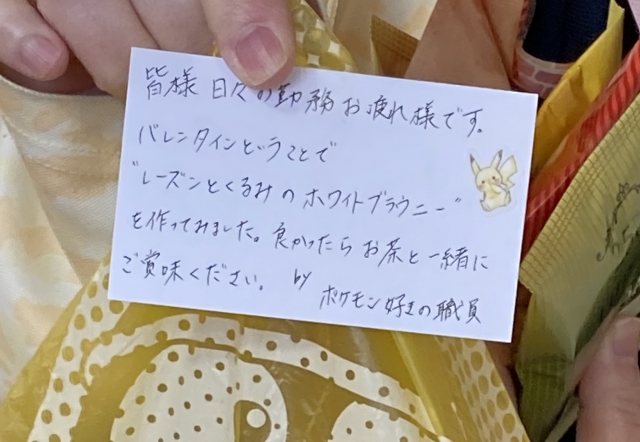 皆様 日々の勤務お疲れ様です。
バレンタインということで
"レーズンとくるみのホワイトブラウニー"
を作ってみました。良かったらお茶と一緒に
ご賞味ください。 by
ポケモン好きの職員